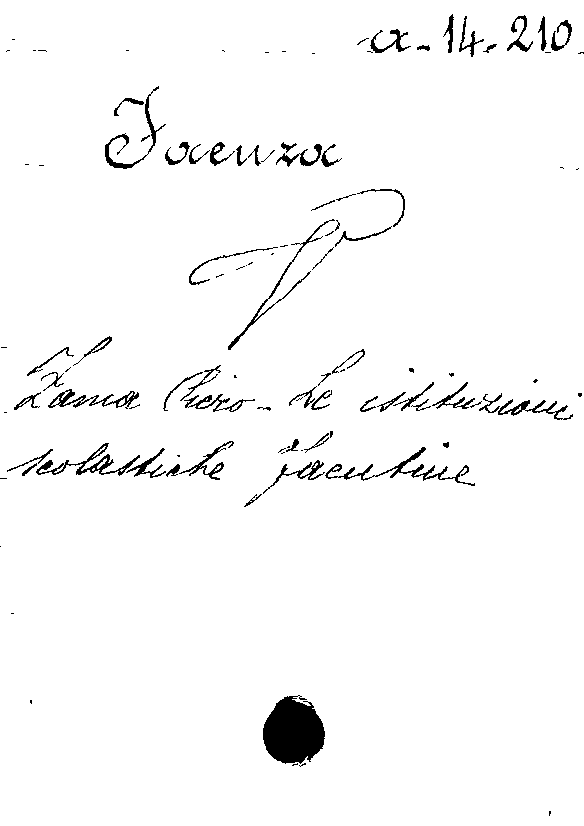 a-14-210
Faenza
Zama Piero - Le istituzioni
scolastiche faentine